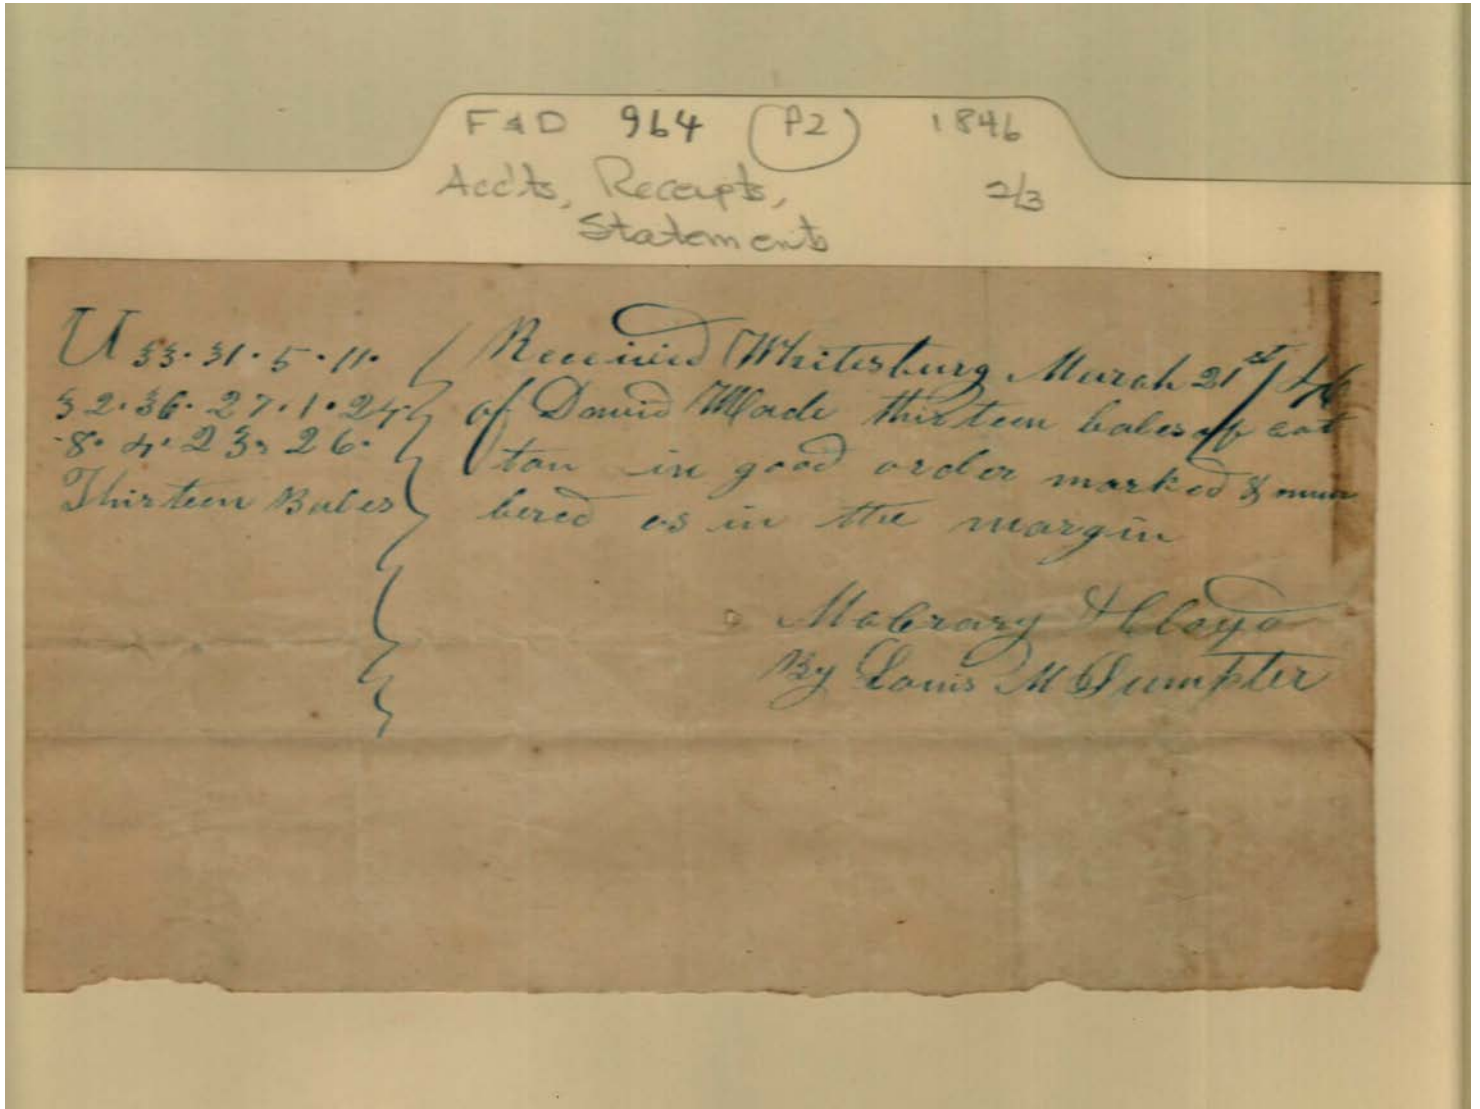 F & D 964 (P2) 1846
Accts, Receipts, 2/3
Statements
U 33. 31. 5. 11.
32. 36. 27. 1. 24.
8. 4. 23. 26.
Thirteen Bales
Received Whitesburg March 21st / 46
of David Wade thirteen bales of cot
ton in good order marked & num
bered as in the margin
By Louis M Sumpter